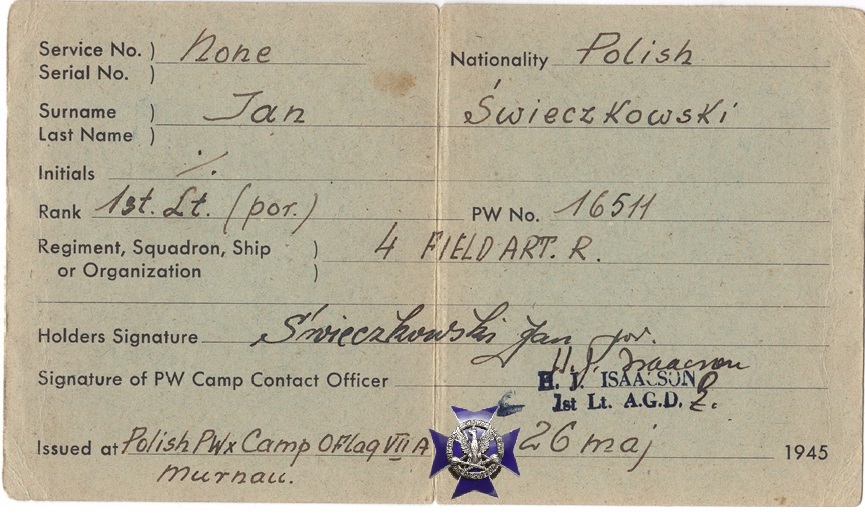 Service No. ) None Nationality Polish
Serial No. )
Surname ) Jan Świeczkowski
Last Name )
Initials ·/·
Rank 1st. Lt. (por.) PW No. 16511
Regiment, Squadron, Ship ) 4 FIELD ART. R.
or Organization )
Holders Signature Świeczkowski Jan por.
H. J. Isaacson
Signature of PW Camp Contact Officer H. J. ISAACSON
1st Lt. A.G.D.
Issued at Polish PWx Camp OFlag VII A 26 maj 1945
Murnau.